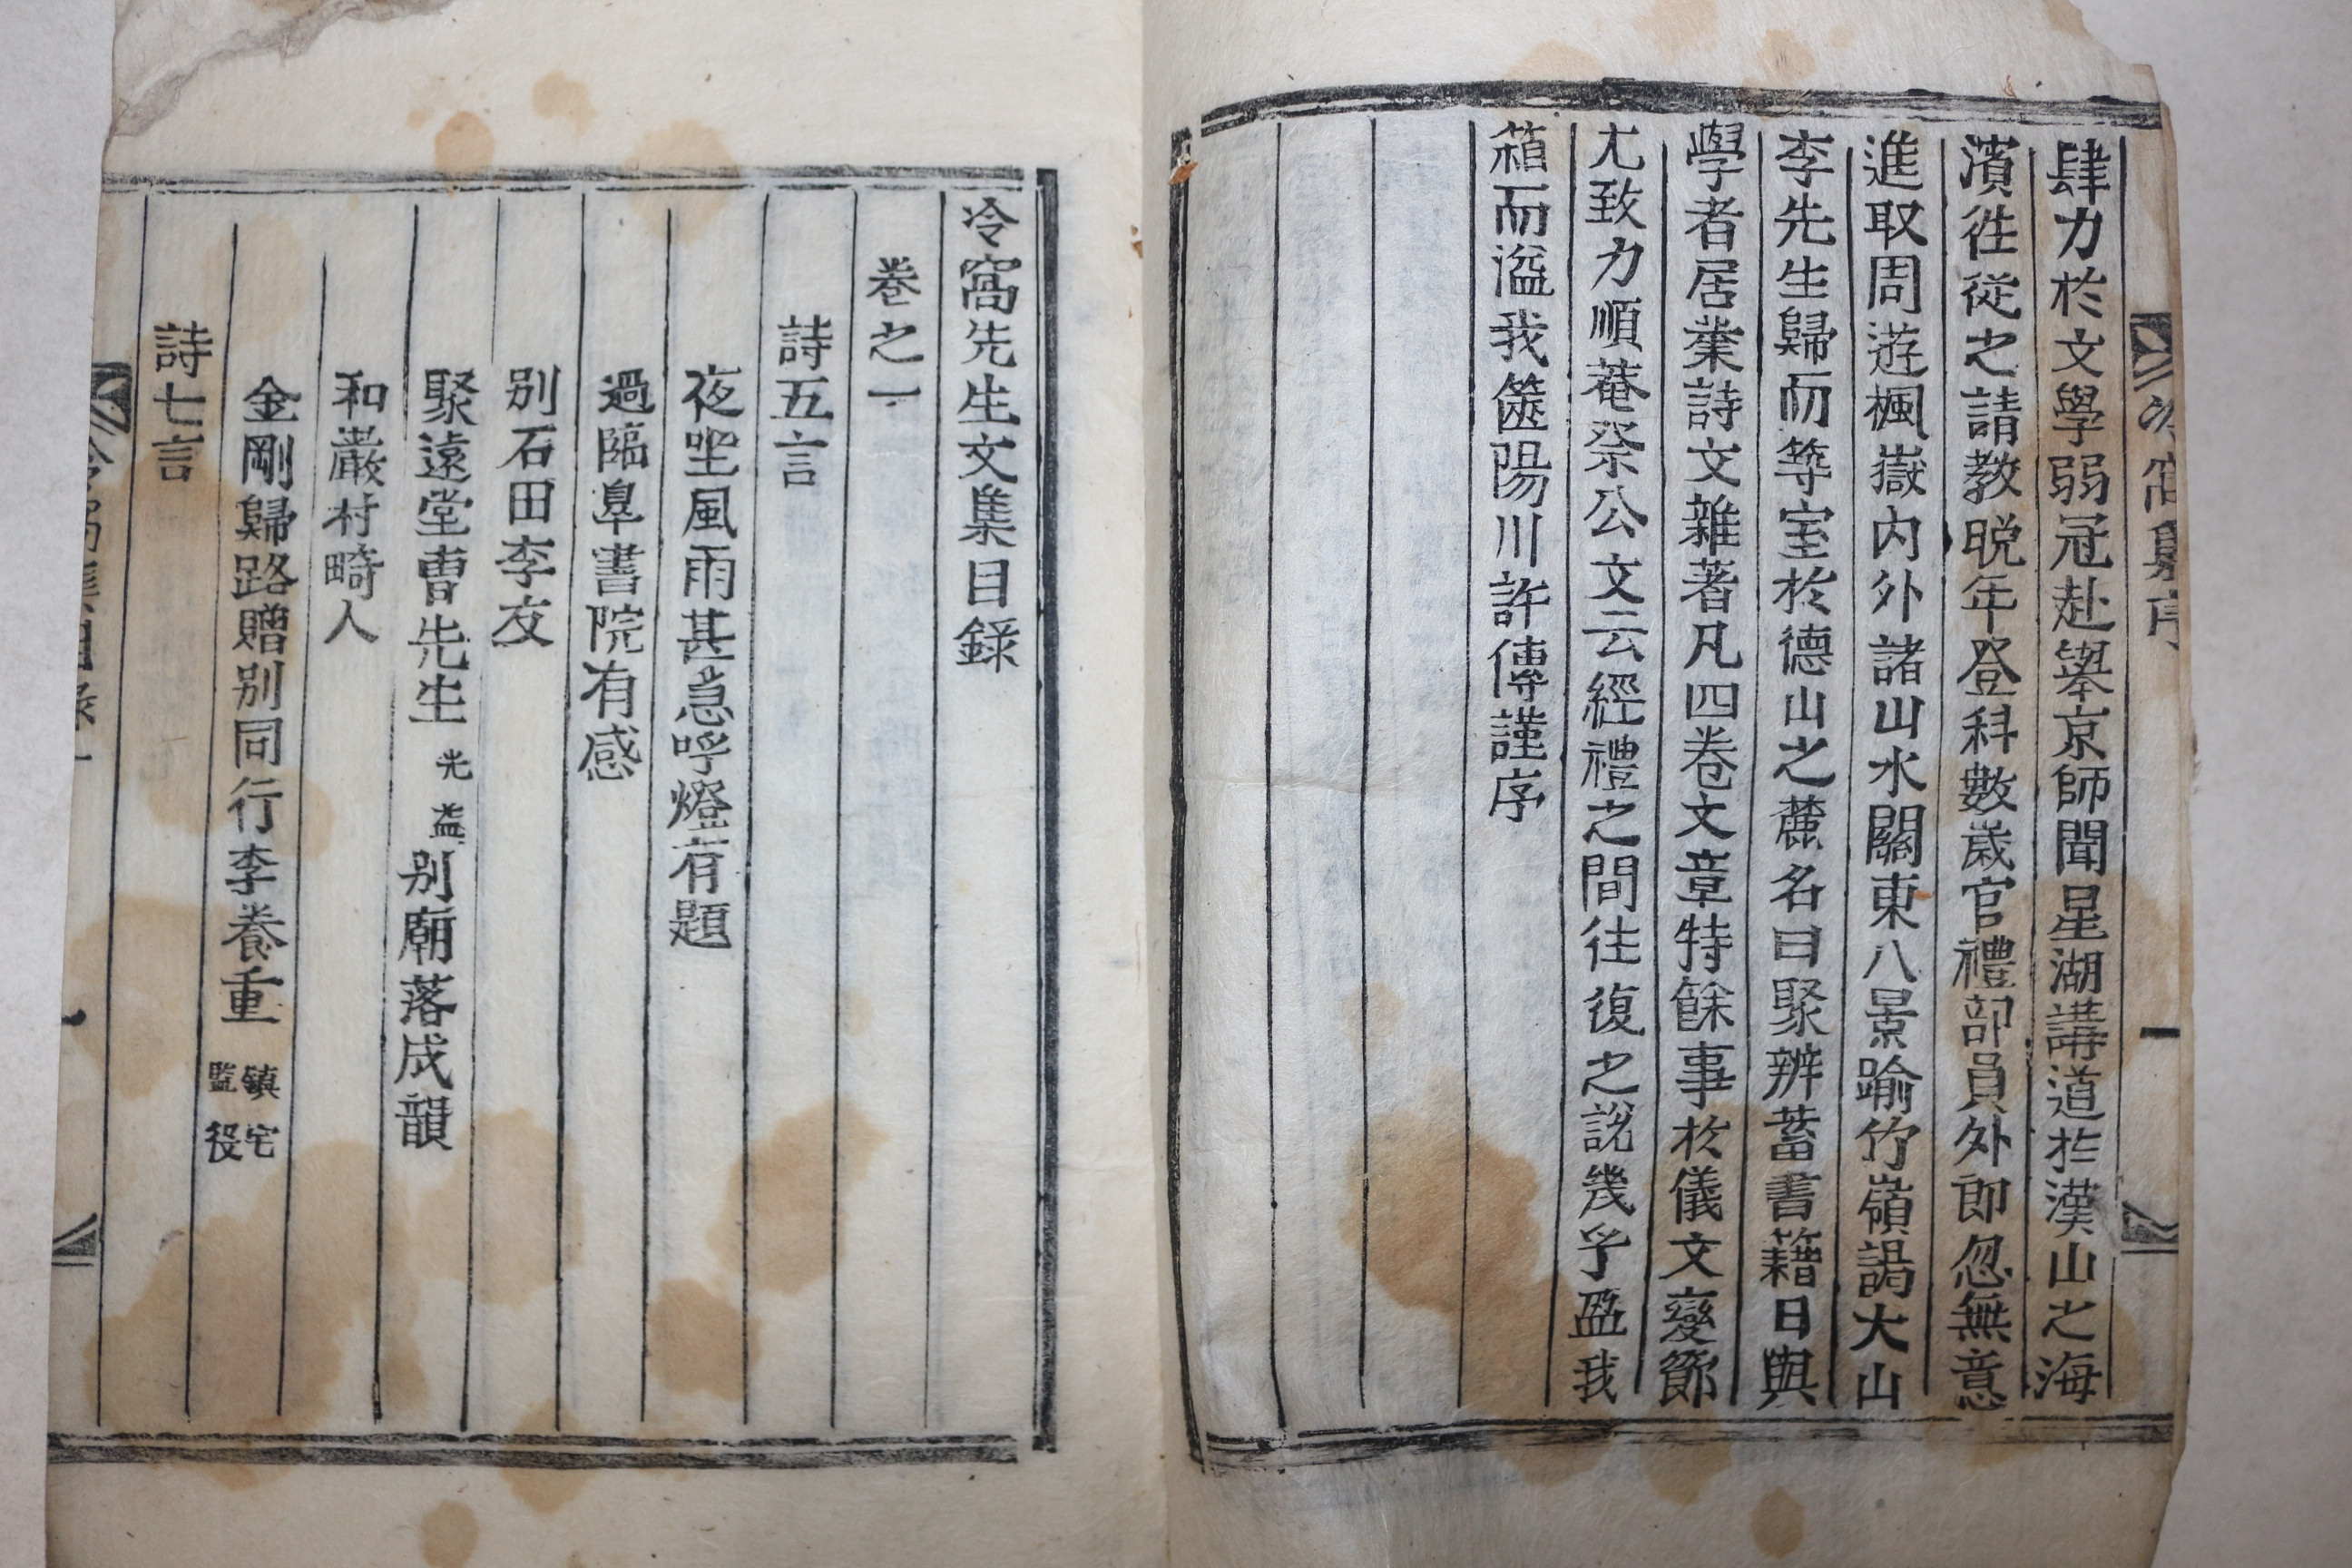 冷窩集序
一
肆力於文學弱冠赴擧京師聞星湖講道於漢山之海
濱徃從之請教晩年登科數歲官禮部員外即忽無意
進取周遊楓嶽內外諸山水關東八景踰竹嶺謁大山
李先生歸而築室於德山之麓名曰聚辨蓄書籍日與
學者居業詩文雜著凡四卷文章特餘事於儀文變節
尤致力順菴祭公文云經禮之間往復之說幾乎盈我
箱而溢我篋陽川許傳謹序
冷窩先生文集目錄
卷之一
詩五言
夜坐風雨甚急呼燈有題
過臨臯書院有感
別石田李友
聚遠堂曹先生光益別廟落成韻
和巖村畸人
金剛歸路贈別同行李養重鎮宅監役
詩七言
冷窩集目錄
一